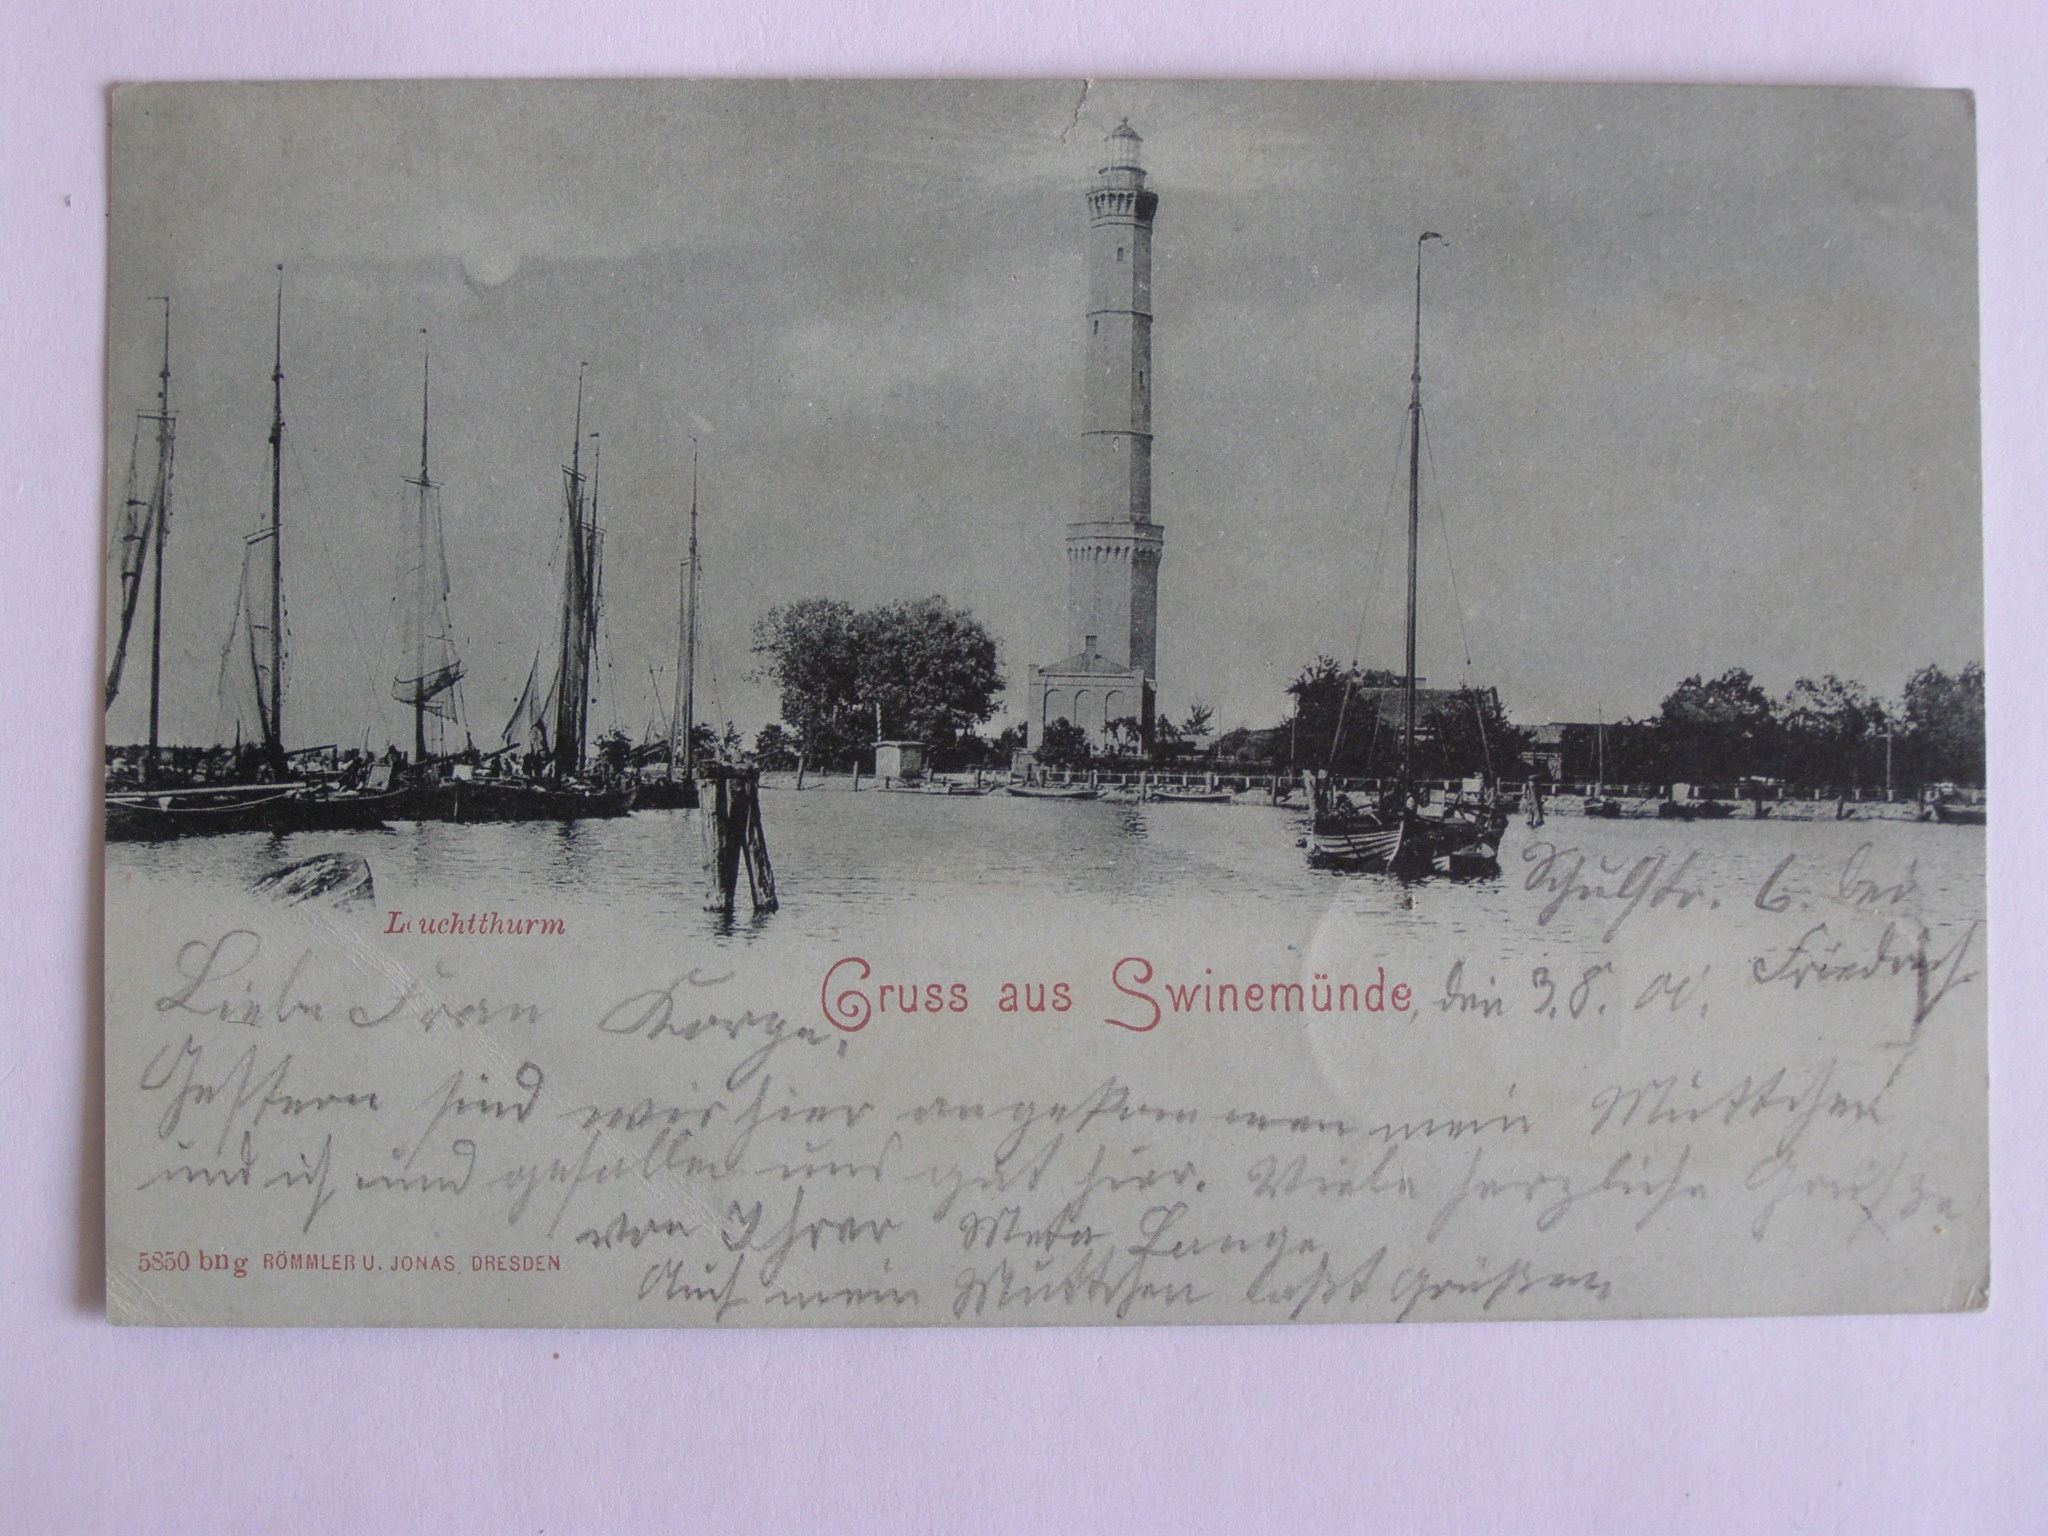 Leuchtthurm
Schulstr. 6. bei
Friedrich.
Gruss aus Swinemünde, den 3.8.00.
Liebe Frau Korge,
Gestern sind wir hier angekommen mein Muttchen
und ich und gefallen uns gut hier. Viele herzliche Grüße
von Ihrer Meta Lange
Auch mein Muttchen läßt grüßen.
5850 bng RÖMMLER U. JONAS, DRESDEN